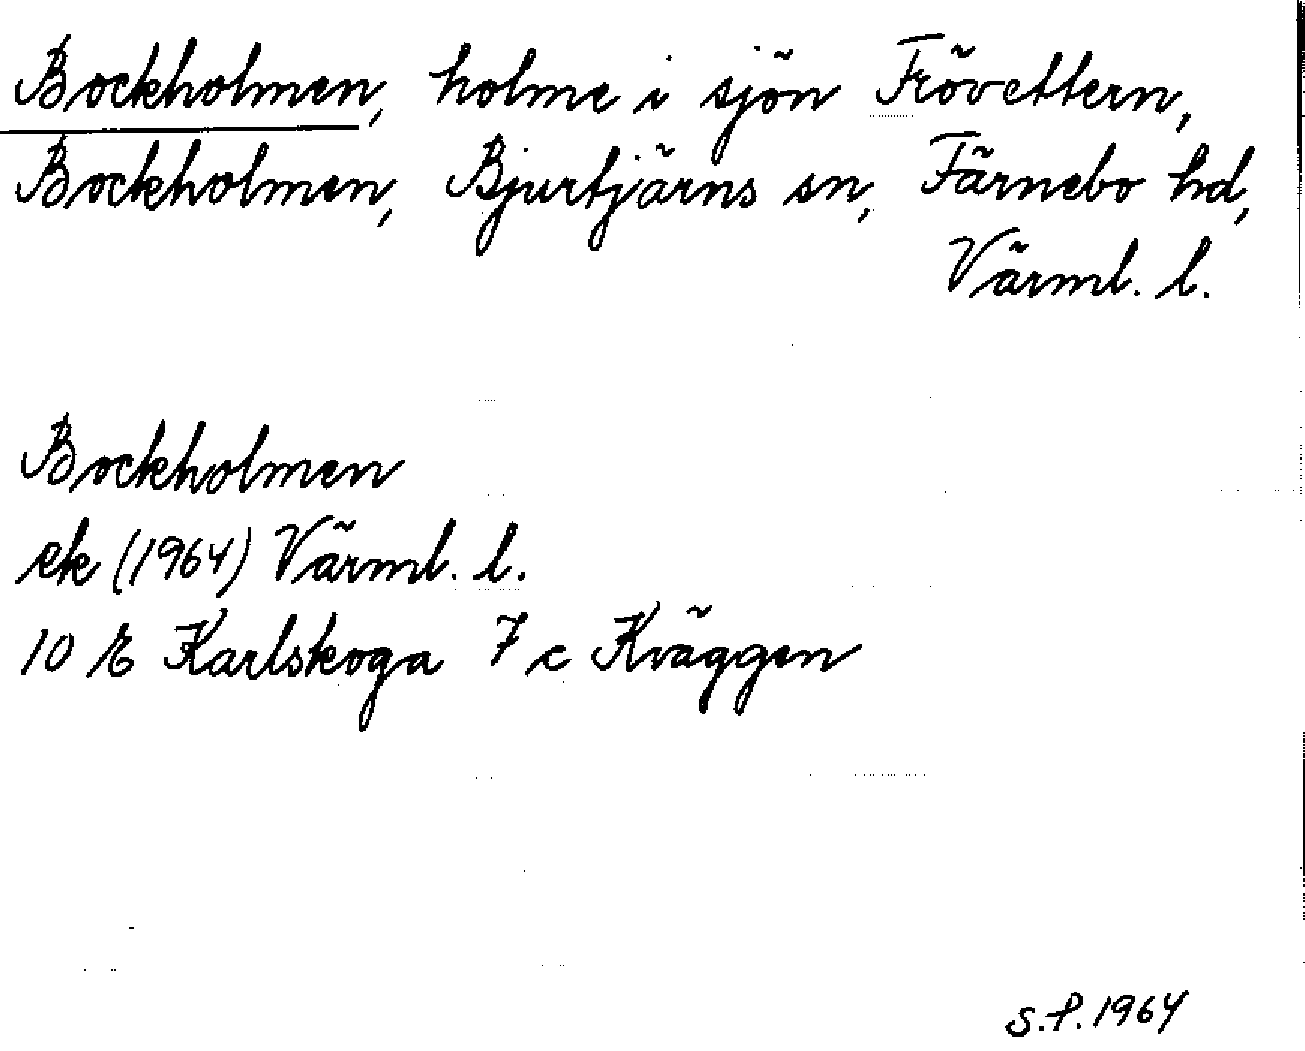 Bockholmen, holme i sjön Frövettern,
Bockholmen, Bjurtjärns sn, Färnebo hd,
Värml. l.
Bockholmen
ek (1964) Värml. l.
10 E Karlskoga 7 c Kväggen
S.P. 1964